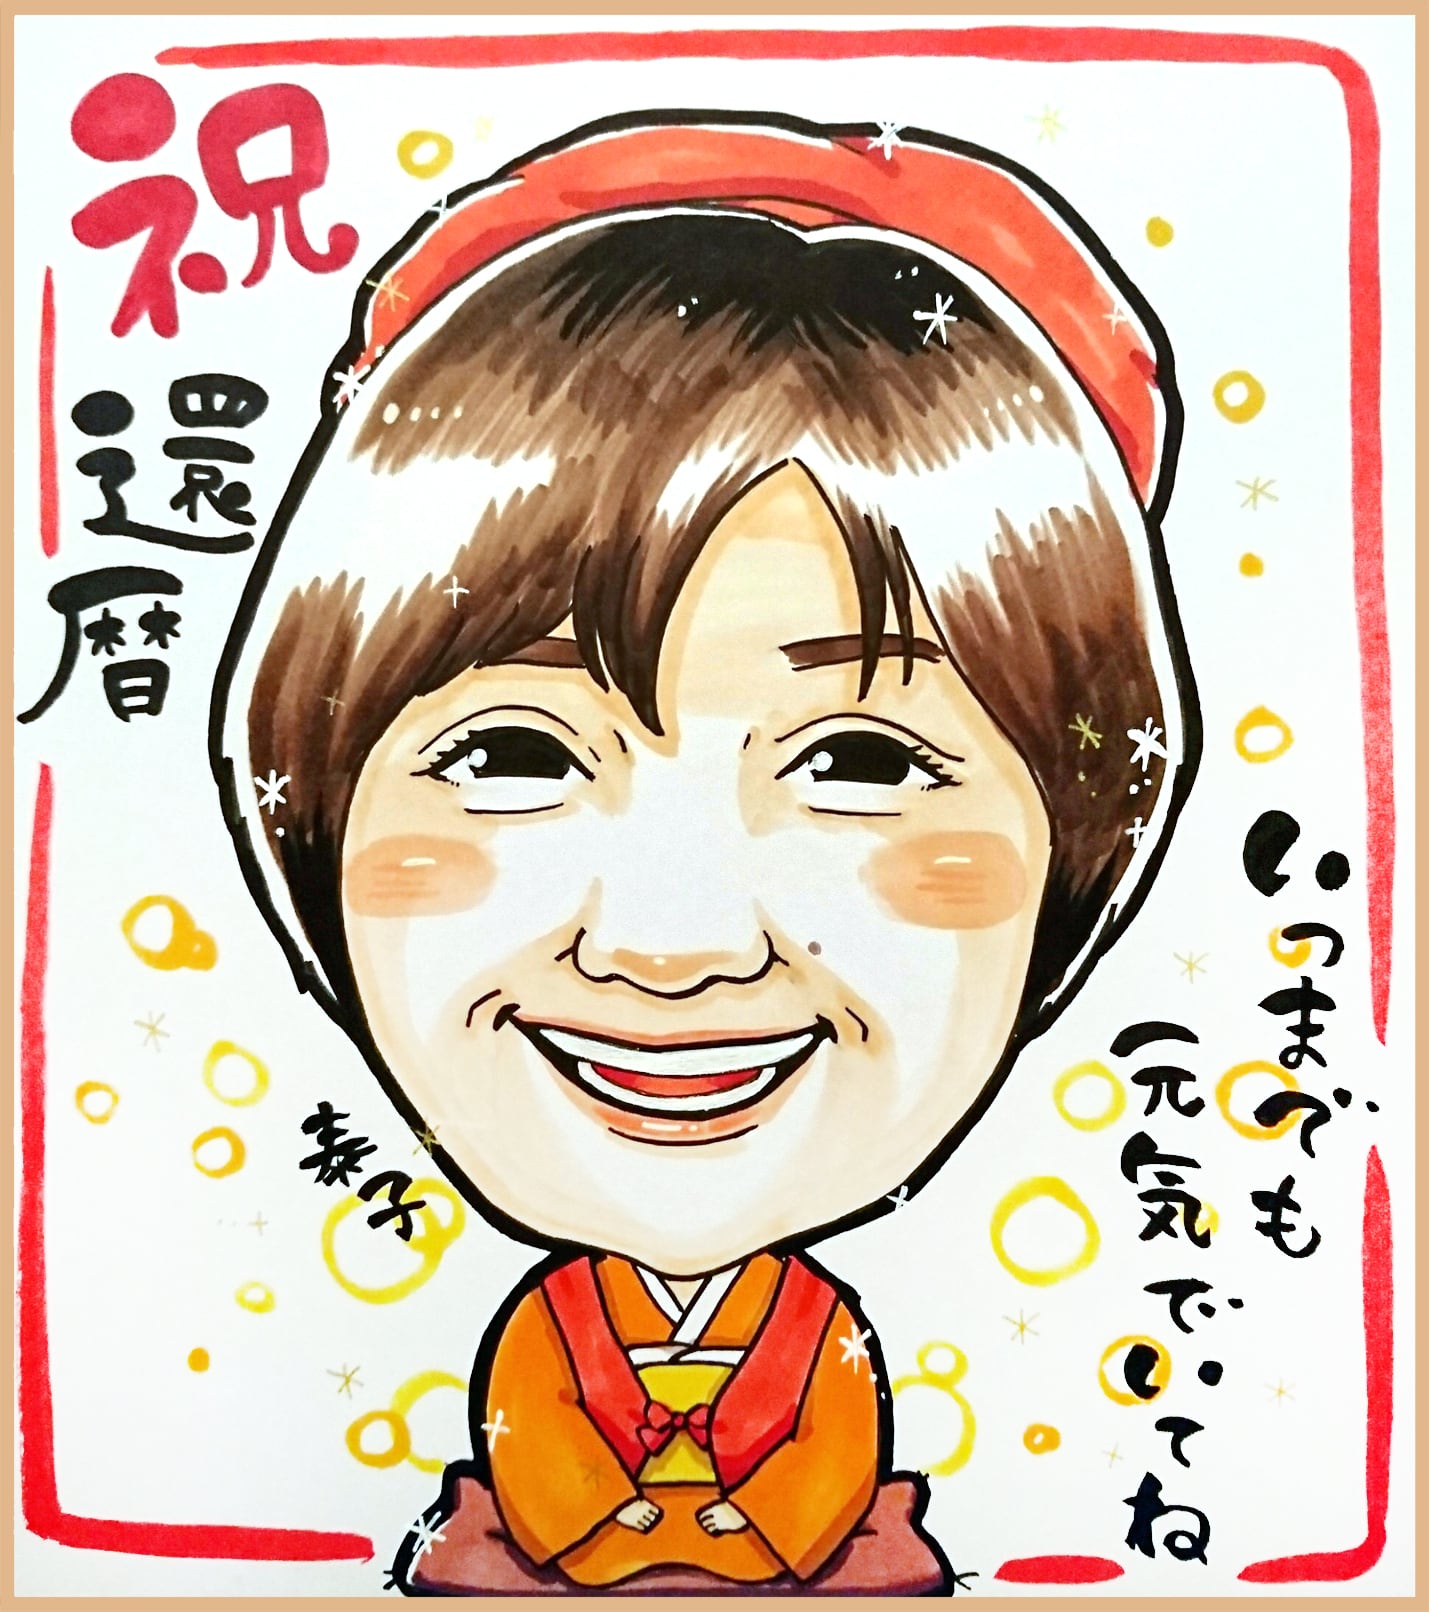 祝
還暦
いつまでも
元気でいてね
泰子